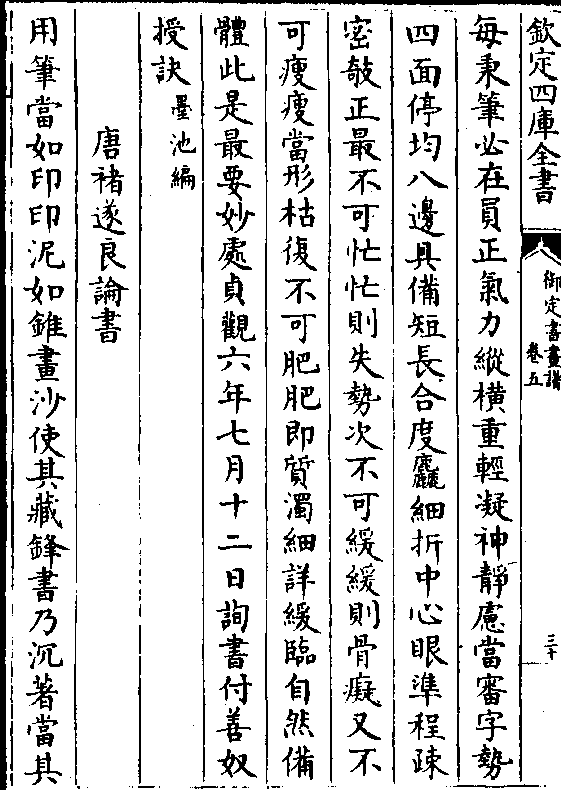 欽定四庫全書
御定書畫譜
卷五
三十
每秉筆必在員正氣力縱橫重輕凝神靜慮當審字勢
四面停均八邊具備短長合度麤細折中心眼準程疎
密攲正最不可忙忙則失勢次不可緩緩則骨癡又不
可瘦瘦當形枯復不可肥肥即質濁細詳緩臨自然備
體此是最要妙處貞觀六年七月十二日詢書付善奴
授訣墨池編
唐褚遂良論書
用筆當如印印泥如錐畫沙使其藏鋒書乃沉著當其